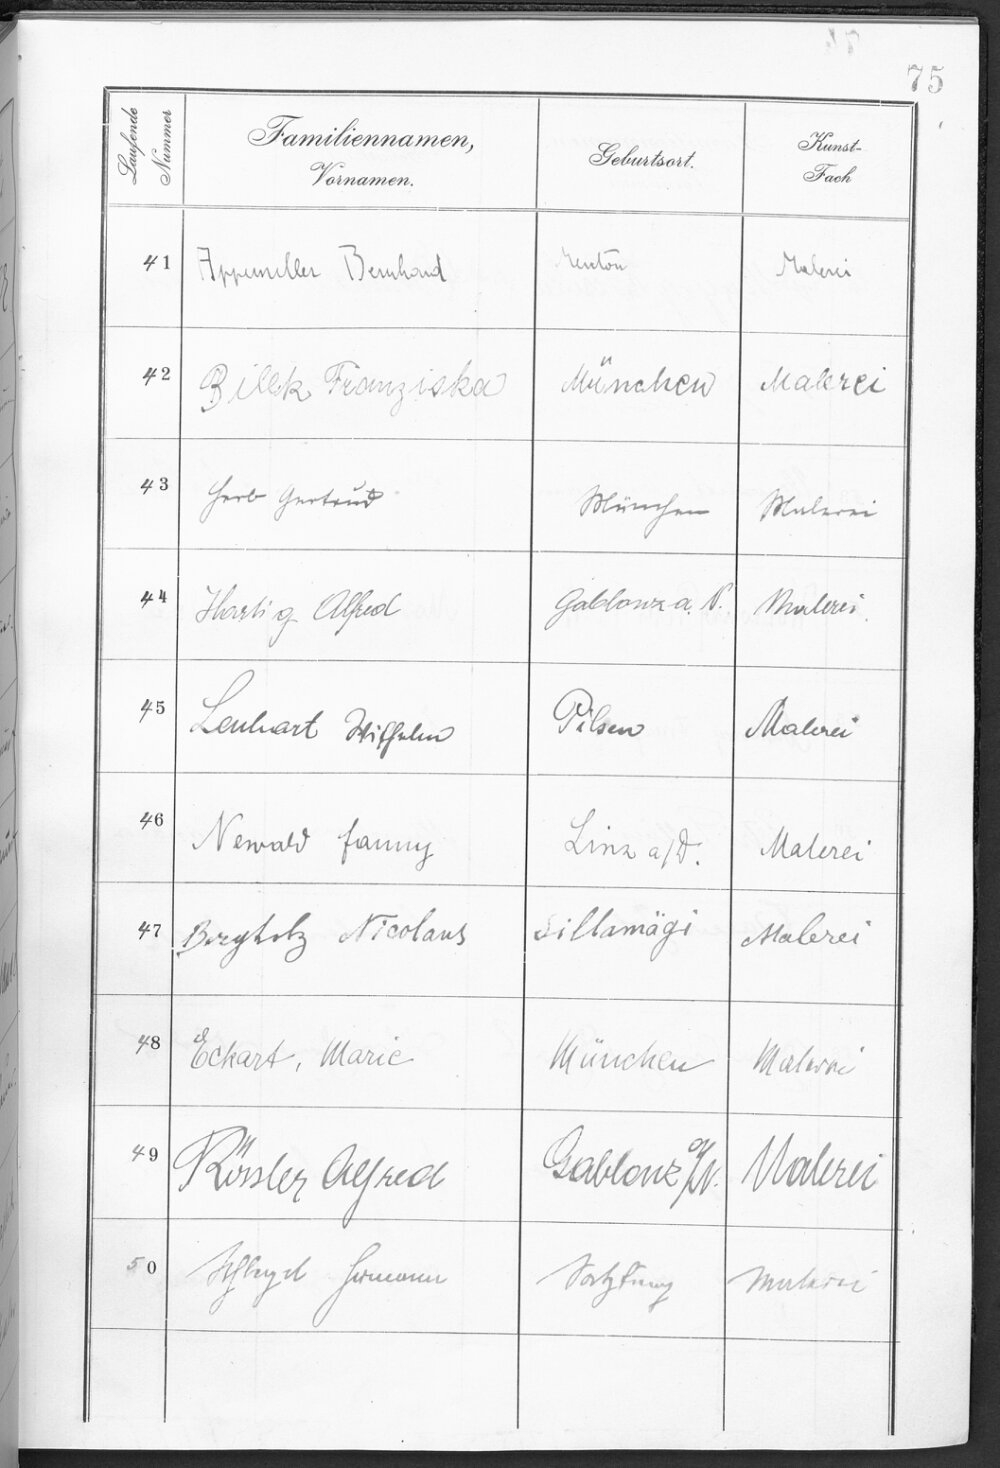 75
Laufende Nummer
Familiennamen, Vornamen.
Geburtsort.
Kunst-Fach
41 Bernhard Menton Malerei
42 Billek Franziska München Malerei
43 Herb Gertrud München Malerei
44 Hartig Alfred Gablonz a. N. Malerei.
45 Lenhart Wilhelm Pilsen Malerei
46 Newald Fanny Linz a/D. Malerei
47 Bergholz Nicolaus Sillamägi Malerei
48 Eckart, Marie München Malerei
49 Rössler Alfred Gablonz a/N. Malerei
50 Hermann Malerei